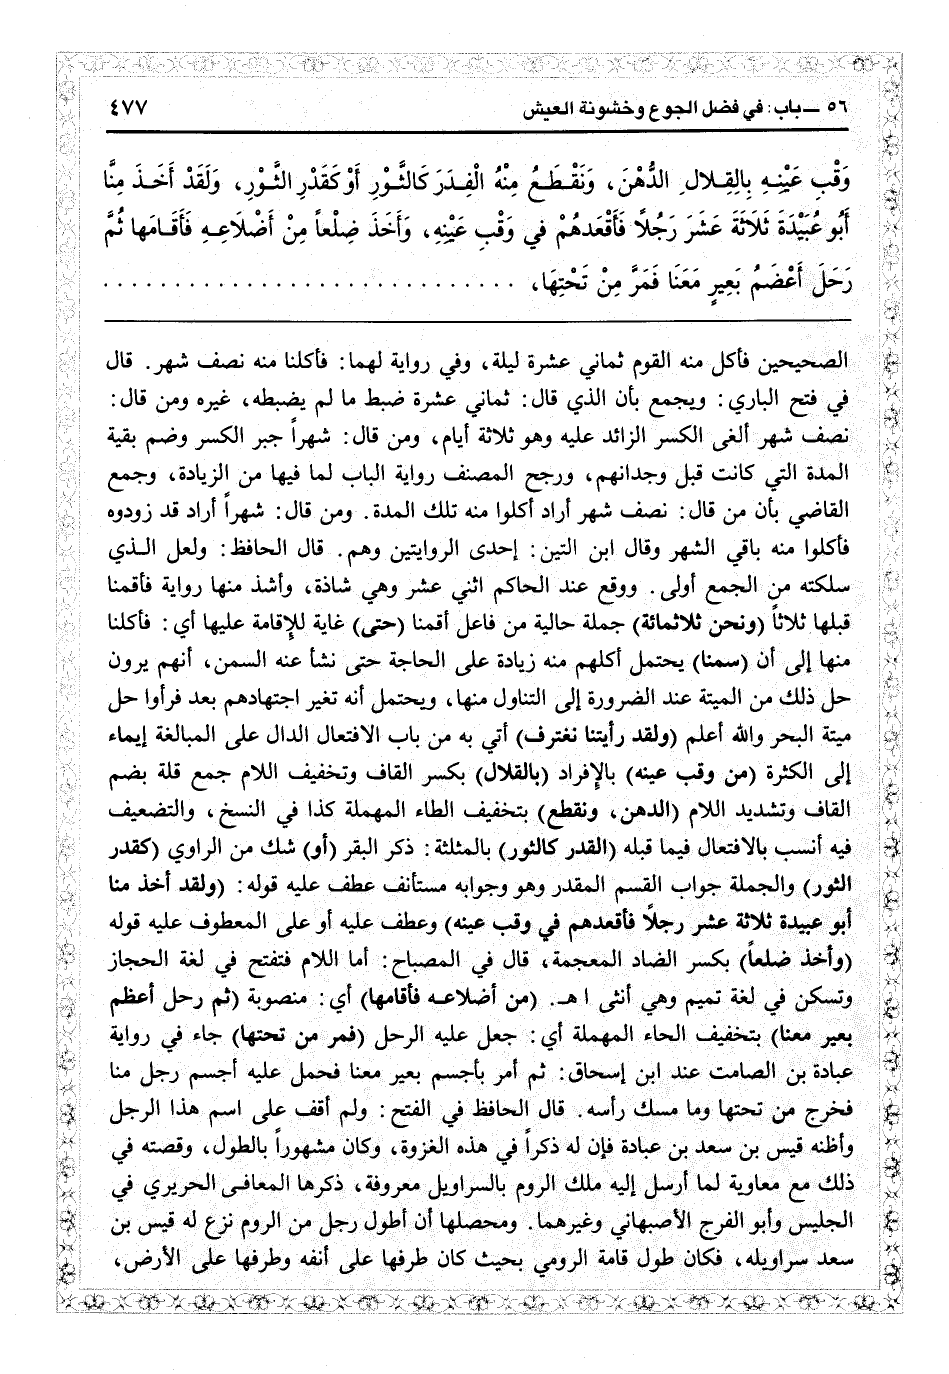 ٥٦ ــ باب: في فضل الجوع وخشونة العيش ٤٧٧
وَقْبِ عَيْنِـهِ بِالِقِـلالِ الدُّهْنَ، وَنَقْـطَـعُ مِنْهُ الْفِـدَرَ كَالثَّـوْرِ أَوْ كَقَدْرِ الثَّـوْرِ، وَلَقَدْ أَخَـذَ مِنَّا
أَبُو عُبَيْدَةَ ثَلَاثَةَ عَشَرَ رَجُلًا فَأَقْعَدَهُمْ في وَقْبِ عَيْنِهِ، وَأَخَذَ ضِلَعاً مِنْ أَضْلَاعِـهِ فَأَقَـامَها ثُمَّ
رَحَلَ أَعْضَمُ بَعِيرٍ مَعَنَا فَمَرَّ مِنْ تَحْتِهَا، . . . . . . . . . . . . . . . . . . . . . . . . . . . .
الصحيحين فأكل منه القوم ثماني عشرة ليلة، وفي رواية لهما: فأكلنا منه نصف شهر. قال
في فتح الباري: ويجمع بأن الذي قال: ثماني عشرة ضبط ما لم يضبطه، غيره ومن قال:
نصف شهر ألغى الكسر الزائد عليه وهو ثلاثة أيام، ومن قال: شهراً جبر الكسر وضم بقية
المدة التي كانت قبل وجدانهم، ورجح المصنف رواية الباب لما فيها من الزيادة، وجمع
القاضي بأن من قال: نصف شهر أراد أكلوا منه تلك المدة. ومن قال: شهراً أراد قد زودوه
فأكلوا منه باقي الشهر وقال ابن التين: إحدى الروايتين وهم. قال الحافظ: ولعل الـذي
سلكته من الجمع أولى. ووقع عند الحاكم اثني عشر وهي شاذة، وأشذ منها رواية فأقمنا
قبلها ثلاثاً (ونحن ثلاثمائة) جملة حالية من فاعل أقمنا (حتى) غاية للإقامة عليها أي: فأكلنا
منها إلى أن (سمنا) يحتمل أكلهم منه زيادة على الحاجة حتى نشأ عنه السمن، أنهم يرون
حل ذلك من الميتة عند الضرورة إلى التناول منها، ويحتمل أنه تغير اجتهادهم بعد فرأوا حل
ميتة البحر والله أعلم (ولقد رأيتنا نغترف) أتي به من باب الافتعال الدال على المبالغة إيماء
إلى الكثرة (من وقب عينه) بالإفراد (بالقلال) بكسر القاف وتخفيف اللام جمع قلة بضم
القاف وتشديد اللام (الدهن، ونقطع) بتخفيف الطاء المهملة كذا في النسخ، والتضعيف
فيه أنسب بالافتعال فيما قبله (القدر كالثور) بالمثلثة: ذكر البقر (أو) شك من الراوي (كقدر
الثور) والجملة جواب القسم المقدر وهو وجوابه مستأنف عطف عليه قوله: (ولقد أخذ منا
أبو عبيدة ثلاثة عشر رجلًا فأقعدهم في وقب عينه) وعطف عليه أو على المعطوف عليه قوله
(وأخذ ضلعاً) بكسر الضاد المعجمة، قال في المصباح: أما اللام فتفتح في لغة الحجاز
وتسكن في لغة تميم وهي أنثى ا هـ. (من أضلاعـه فأقامها) أي: منصوبة (ثم رحل أعظم
بعير معنا) بتخفيف الحاء المهملة أي: جعل عليه الرحل (فمر من تحتها) جاء في رواية
عبادة بن الصامت عند ابن إسحاق: ثم أمر بأجسم بعير معنا فحمل عليه أجسم رجل منا
فخرج من تحتها وما مسك رأسه. قال الحافظ في الفتح: ولم أقف على اسم هذا الرجل
وأظنه قيس بن سعد بن عبادة فإن له ذكراً في هذه الغزوة، وكان مشهوراً بالطول، وقصته في
ذلك مع معاوية لما أرسل إليه ملك الروم بالسراويل معروفة، ذكرها المعافـى الحريري في
الجليس وأبو الفرج الأصبهاني وغيرهما. ومحصلها أن أطول رجل من الروم نزع له قيس بن
سعد سراويله، فكان طول قامة الرومي بحيث كان طرفها على أنفه وطرفها على الأرض،